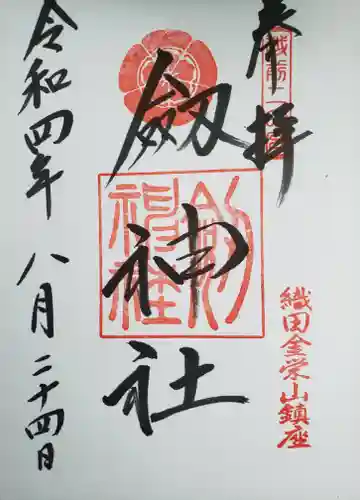 奉拝
越前二の宮
織田金栄山鎮座
劔神社
劔神社
令和四年 八月二十四日